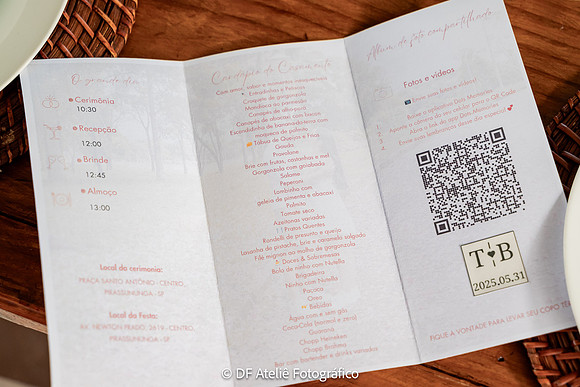 Cerimônia
10:30
Recepção
12:00
Brinde
12:45
Almoço
13:00
Local da cerimonia:
PRAÇA SANTO ANTÔNIO - CENTRO,
PIRASSUNUNGA - SP
Local da Festa:
RUA NEWTON PRADO, 2619 - CENTRO,
PIRASSUNUNGA - SP
Cardápio do Casamento
Com amor, sabor e momentos inesquecíveis
Entradinhas e Petiscos
Canapés de gorgonzola
Canapés de alho-poró
Canapés de abacaxi com bacon
moqueca de palmito
Tábua de Queijos e Frios
Gouda
Provolone
Brie com frutas, castanhas e mel
Gorgonzola com goiabada
Salame
Peperoni
Lombinho com
geleia de pimenta e abacaxi
Palmito
Tomate seco
Azeitonas variadas
Pratos Quentes
Rondelli de presunto e queijo
Lasanha de pistache, brie e caramelo salgado
Filé mignon ao molho de gorgonzola
Doces & Sobremesas
Bolo de ninho com Nutella
Brigadeiro
Ninho com Nutella
Paçoca
Oreo
Bebidas
Água com e sem gás
Coca-Cola (normal e zero)
Guaraná
Chopp Heineken
Chopp Brahma
Bar com bartender e drinks variados
Álbum de foto compartilhado
Fotos e vídeos
T B
2025.05.31
FIQUE À VONTADE PARA LEVAR SEU COPO
© DF Ateliê Fotográfico